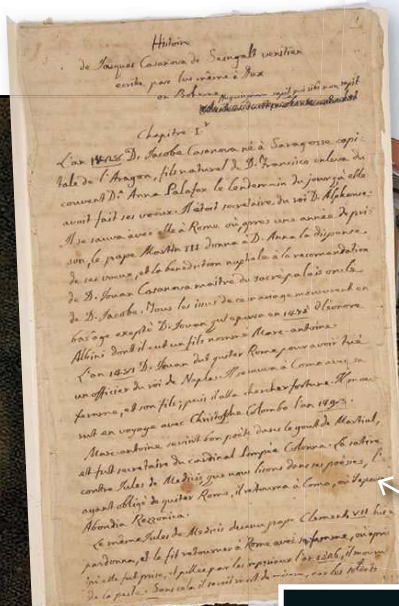 Histoire
de Jacques Casanova de Seingalt venitien
ecrite par lui même à Dux
en Boheme
Nequicquam sapit qui sibi non sapit
Chapitre I.r
L'an 1428 D. Jacobe Casanova né à Saragosse capi-
tale de l'Aragon, fils naturel de D. Francisco enleva du
couvent D.a Anna Palafox le lendemain du jour qu'elle
avoit fait ses voeux. Il étoit secretaire du roi D. Alphonse.
Il se sauva avec elle à Rome où apres une année de pri-
son, le pape Martin III donna à D. Anna la dispense
de ses voeux, et la benediction nuptiale à la recomandation
de D. Jouan Casanova maitre du sacré palais oncle
de D. Jacobe. Tous les issus de ce mariage moururent en
bas âge exepté D. Jouan qui epousa en 1475 Eleonore
Albini dont il eut un fils nommé Marc-antoine.
L'an 1481 D. Jouan dut quiter Rome pour avoir tué
un officier du roi de Naples. Il se sauva à Como avec sa
femme, et son fils; puis il alla chercher fortune. Il mou-
rut en voyage avec Christophe Colombo l'an 1493.
Marc-antoine devint bon poète dans le goût de Martial,
et fut secretaire du cardinal Pompée Colonna. La satire
contre Jules de Medicis que nous lisons dans ses poesies, l'
ayant obligé de quiter Rome, il retourna à Como, où il epousa
Abondia Rezzonica.
Le même Jules de Medicis devenu pape Clement VII lui
pardonna, et le fit retourner à Rome avec sa femme, où apres
qu'elle fut prise, et pillée par les imperiaux l'an 1526, il mourut
de la peste. Sans cela il seroit mort de misere, car les soldats